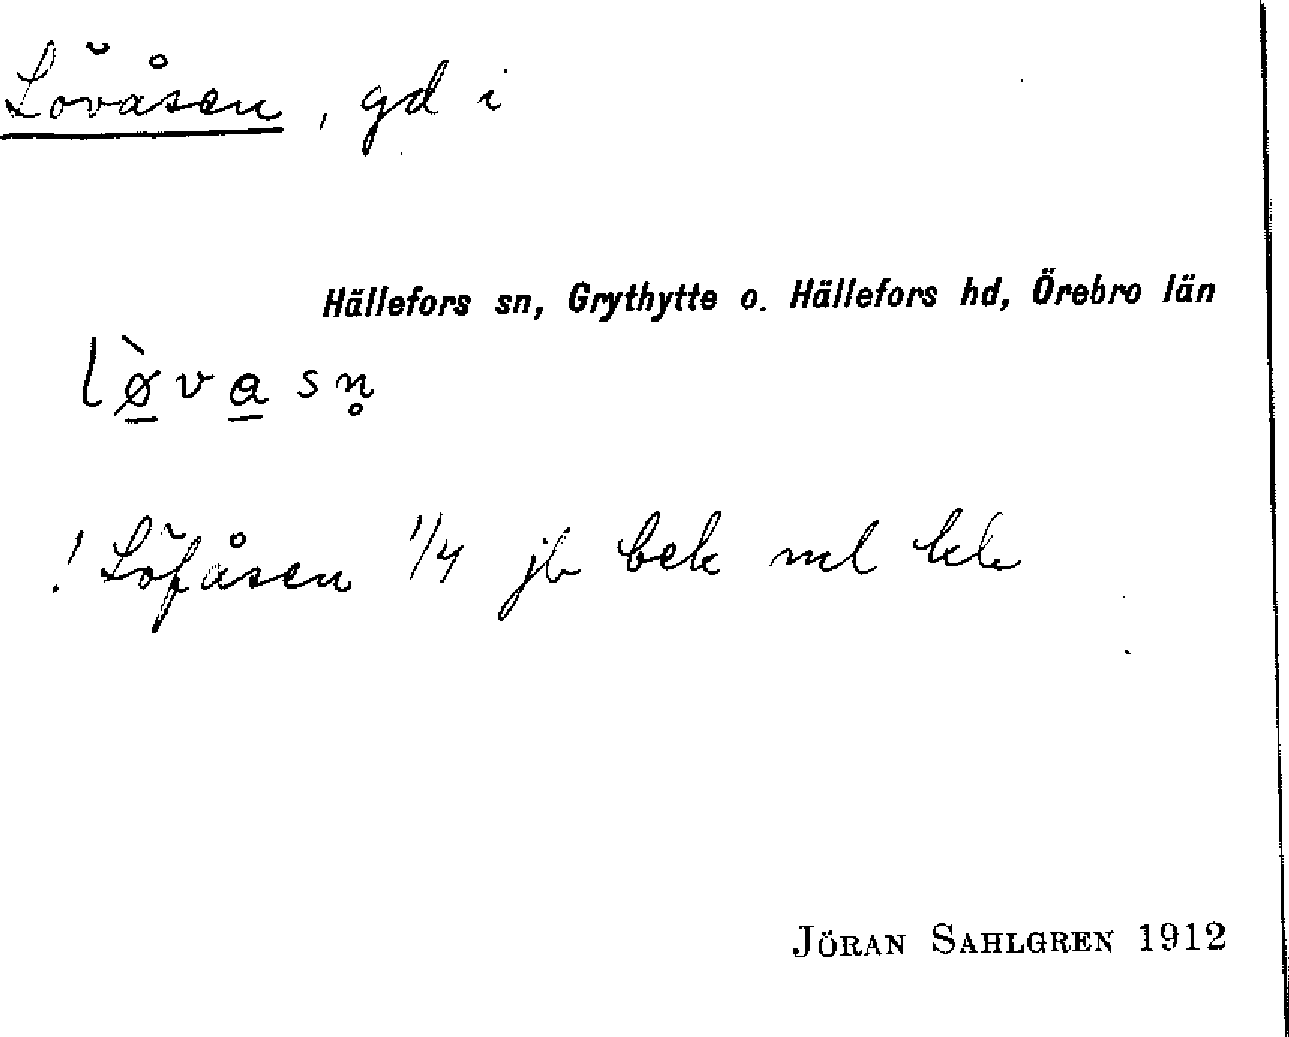 Lövåsen, gd i
Hällefors sn, Grythytte o. Hällefors hd, Örebro län
lø̠̀va̠sn̥
! Löfåsen 1/4 jb bek ml kk
JÖRAN SAHLGREN 1912